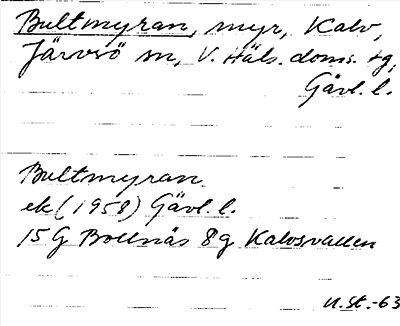 Bultmyran, myr, Kalv,
Järvsö sn, V. Häls. doms. tg,
Gävl. l.
Bultmyran
ek (1958) Gävl. l.
15G Bollnäs 8g Kalvsvallen
U.St.-63